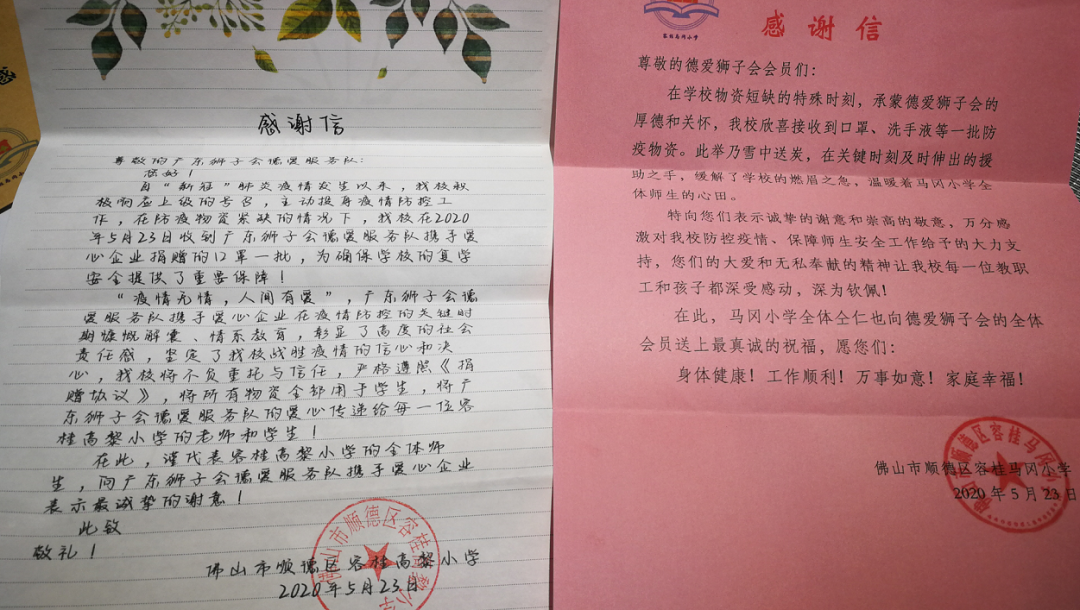 感谢信
尊敬的广东狮子会德爱服务队：
您好！
自“新冠”肺炎疫情发生以来，我校积
极响应上级的号召，主动投身疫情防控工
作，在防疫物资紧缺的情况下，我校在2020
年5月23日收到广东狮子会德爱服务队携手爱
心企业捐赠的口罩一批，为确保学校的复学
安全提供了重要保障！
“疫情无情，人间有爱”，广东狮子会德
爱服务队携手爱心企业在疫情防控的关键时
期慷慨解囊、情系教育，彰显了高度的社会
责任感，坚定了我校战胜疫情的信心和决
心，我校将不负重托与信任，严格遵照《捐
赠协议》，将所有物资全部用于学生，将广
东狮子会德爱服务队的爱心传递给每一位容
桂高黎小学的老师和学生！
在此，谨代表容桂高黎小学的全体师
生，向广东狮子会德爱服务队携手爱心企业
表示最诚挚的谢意！
此致
敬礼！
佛山市顺德区容桂高黎小学
2020年5月23日
佛山市顺德区容桂高黎小学
容桂马冈小学
感谢信
尊敬的德爱狮子会会员们：
在学校物资短缺的特殊时刻，承蒙德爱狮子会的
厚德和关怀，我校欣喜接收到口罩、洗手液等一批防
疫物资。此举乃雪中送炭，在关键时刻及时伸出的援
助之手，缓解了学校的燃眉之急，温暖着马冈小学全
体师生的心田。
特向您们表示诚挚的谢意和崇高的敬意，万分感
激对我校防控疫情、保障师生安全工作给予的大力支
持，您们的大爱和无私奉献的精神让我校每一位教职
工和孩子都深受感动，深为钦佩！
在此，马冈小学全体仝仁也向德爱狮子会的全体
会员送上最真诚的祝福，愿您们：
身体健康！工作顺利！万事如意！家庭幸福！
佛山市顺德区容桂马冈小学
2020年5月23日
佛山市顺德区容桂马冈小学